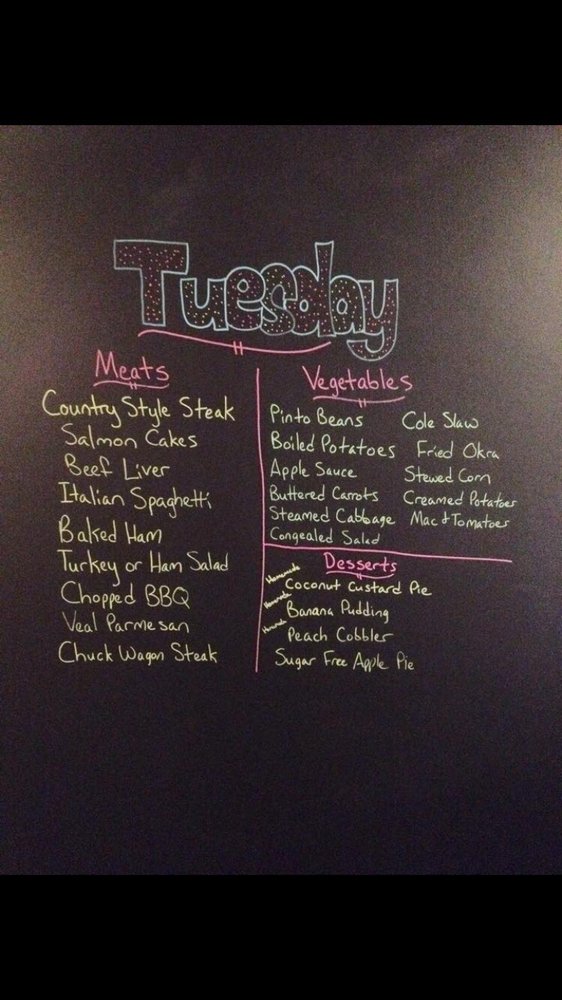 Tuesday
Meats
Country Style Steak
Salmon Cakes
Beef Liver
Italian Spaghetti
Baked Ham
Turkey or Ham Salad
Chopped BBQ
Veal Parmesan
Chuck Wagon Steak
Vegetables
Pinto Beans
Boiled Potatoes
Apple Sauce
Buttered Carrots
Steamed Cabbage
Congealed Salad
Cole Slaw
Fried Okra
Stewed Corn
Creamed Potatoes
Mac & Tomatoes
Desserts
Homemade
Coconut Custard Pie
Homemade
Banana Pudding
Homemade
Peach Cobbler
Sugar Free Apple Pie